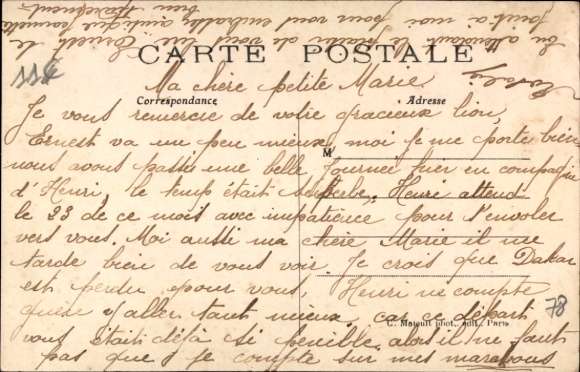 CARTE POSTALE
Correspondance
Adresse
M
Ma chère petite Marie
Je vous remercie de votre gracieux lion,
Ernest va un peu mieux, moi je me porte bien
nous avons passé une belle journée hier en compagnie
d'Henri, le temp était superbe, Henri attend
le 23 de ce mois avec impatience pour s'envoler
vers vous. Moi aussi ma chère Marie il me
tarde bien de vous voir Je crois que Dakar
est perdu pour vous, Henri ne compte
guère y aller tant mieux, car ce départ
vous était déjà si penible, alors il ne faut
pas que je compte sur mes marabous
En attendant le plaisir de vous lire
joint à moi pour vous embrasser
bien tendrement
C. Mateuil phot., édit., Paris
78